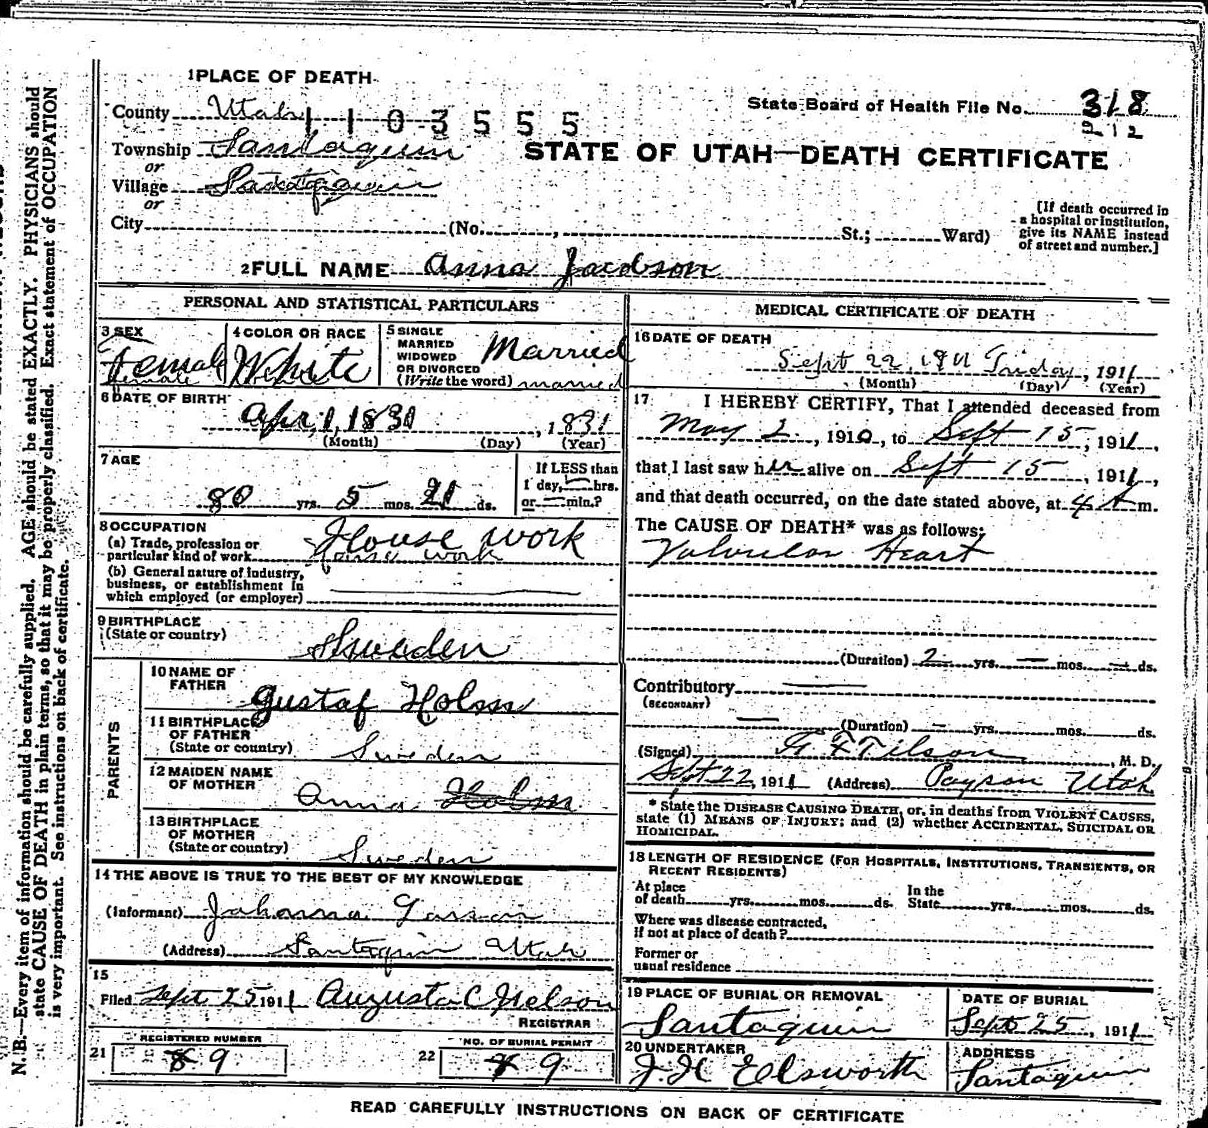 1 PLACE OF DEATH
County Utah
1103555
State Board of Health File No. 318
212
Township Santaquin
or
Village Santaquin
or
STATE OF UTAH—DEATH CERTIFICATE
City (No. , St.; Ward)
[If death occurred in
a hospital or institution,
give its NAME instead
of street and number.]
2 FULL NAME Anna Jacobson
PERSONAL AND STATISTICAL PARTICULARS
3 SEX
Female
Female
4 COLOR OR RACE
White
5 SINGLE
MARRIED
WIDOWED
OR DIVORCED
(Write the word)
Married
married
6 DATE OF BIRTH
Apr. 1, 1831, 1831
(Month) (Day) (Year)
7 AGE
80 yrs. 5 mos. 21 ds.
If LESS than
1 day, — hrs.
or — min.?
8 OCCUPATION
(a) Trade, profession or
particular kind of work
House work
House work
(b) General nature of industry,
business, or establishment in
which employed (or employer)
9 BIRTHPLACE
(State or country)
Sweden
PARENTS
10 NAME OF
FATHER
Gustaf Holm
11 BIRTHPLACE
OF FATHER
(State or country)
Sweden
12 MAIDEN NAME
OF MOTHER
Anna Holm
13 BIRTHPLACE
OF MOTHER
(State or country)
Sweden
14 THE ABOVE IS TRUE TO THE BEST OF MY KNOWLEDGE
(Informant) Johanna
(Address) Santaquin Utah
15
Filed Sept 25 1911 Augusta C Nelson
REGISTRAR
21 REGISTERED NUMBER
8 9
22 NO. OF BURIAL PERMIT
9
MEDICAL CERTIFICATE OF DEATH
16 DATE OF DEATH
Sept 22, 1911 Friday, 1911
(Month) (Day) (Year)
17 I HEREBY CERTIFY, That I attended deceased from
May 2, 1910, to Sept 15, 1911,
that I last saw her alive on Sept 15, 1911,
and that death occurred, on the date stated above, at 4 A m.
The CAUSE OF DEATH* was as follows:
Valvular Heart
(Duration) 2 yrs. — mos. — ds.
Contributory
(SECONDARY)
(Duration) — yrs. mos. ds.
(Signed) Tilson, M. D.
Sept 22, 1911 (Address) Payson Utah
* State the DISEASE CAUSING DEATH, or, in deaths from VIOLENT CAUSES,
state (1) MEANS OF INJURY; and (2) whether ACCIDENTAL, SUICIDAL OR
HOMICIDAL.
18 LENGTH OF RESIDENCE (FOR HOSPITALS, INSTITUTIONS, TRANSIENTS, OR
RECENT RESIDENTS)
At place
of death yrs. mos. ds.
In the
State yrs. mos. ds.
Where was disease contracted,
if not at place of death?
Former or
usual residence
19 PLACE OF BURIAL OR REMOVAL
Santaquin
DATE OF BURIAL
Sept 25, 1911
20 UNDERTAKER
J. H Elsworth
ADDRESS
Santaquin
READ CAREFULLY INSTRUCTIONS ON BACK OF CERTIFICATE
N. B.—Every item of information should be carefully supplied. AGE should be stated EXACTLY. PHYSICIANS should
state CAUSE OF DEATH in plain terms, so that it may be properly classified. Exact statement of OCCUPATION
is very important. See instructions on back of certificate.